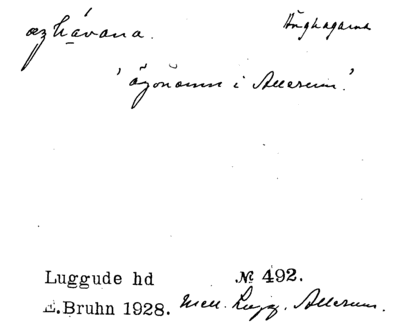 Änghagarna
ägonamn i Allerum.'
Luggude hd № 492.
E.Bruhn 1928. Medd. Lugg. Allerum.